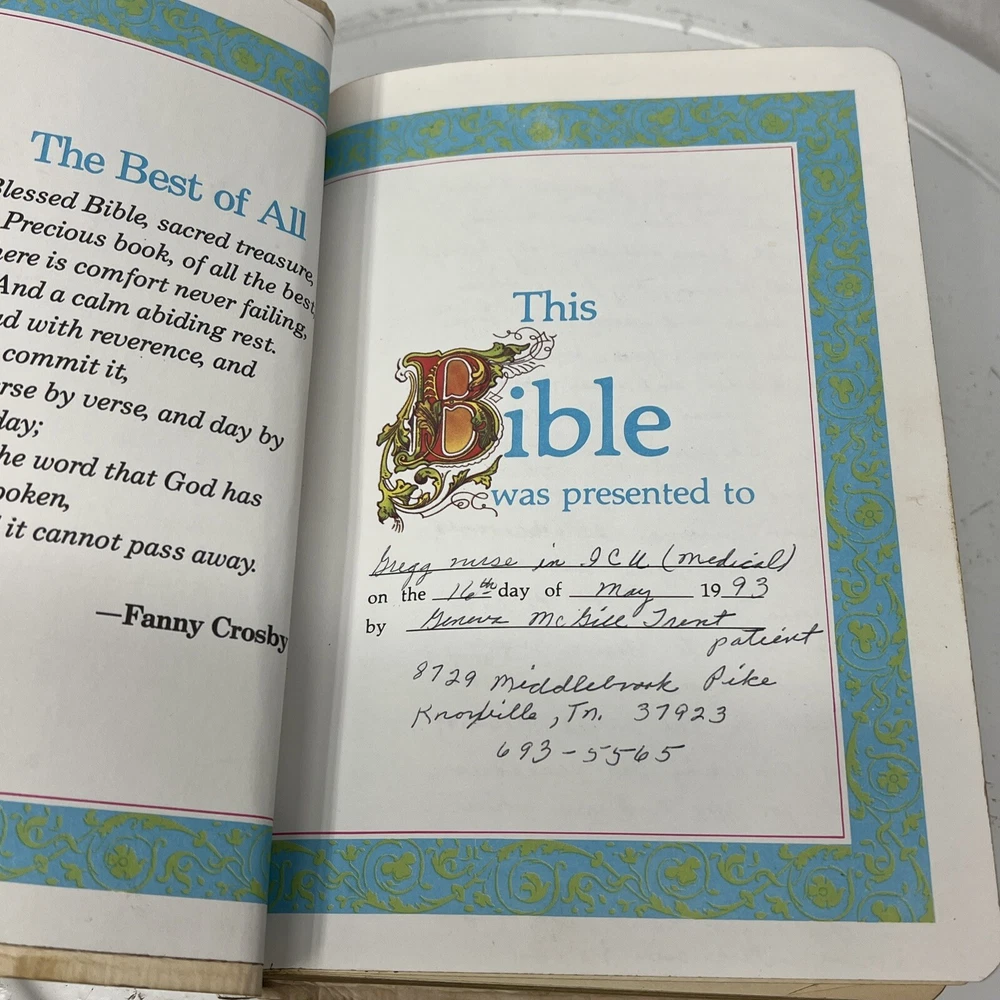 The Best of All
Blessed Bible, sacred treasure,
Precious book, of all the best,
here is comfort never failing,
And a calm abiding rest.
ad with reverence, and
commit it,
rse by verse, and day by
day;
he word that God has
poken,
it cannot pass away.
—Fanny Crosby
This
Bible
was presented to
Gregg nurse in ICU (medical)
on the 16th day of May 1993
by Geneva McGill Trent
patient
8729 Middlebrook Pike
Knoxville, Tn. 37923
693-5565